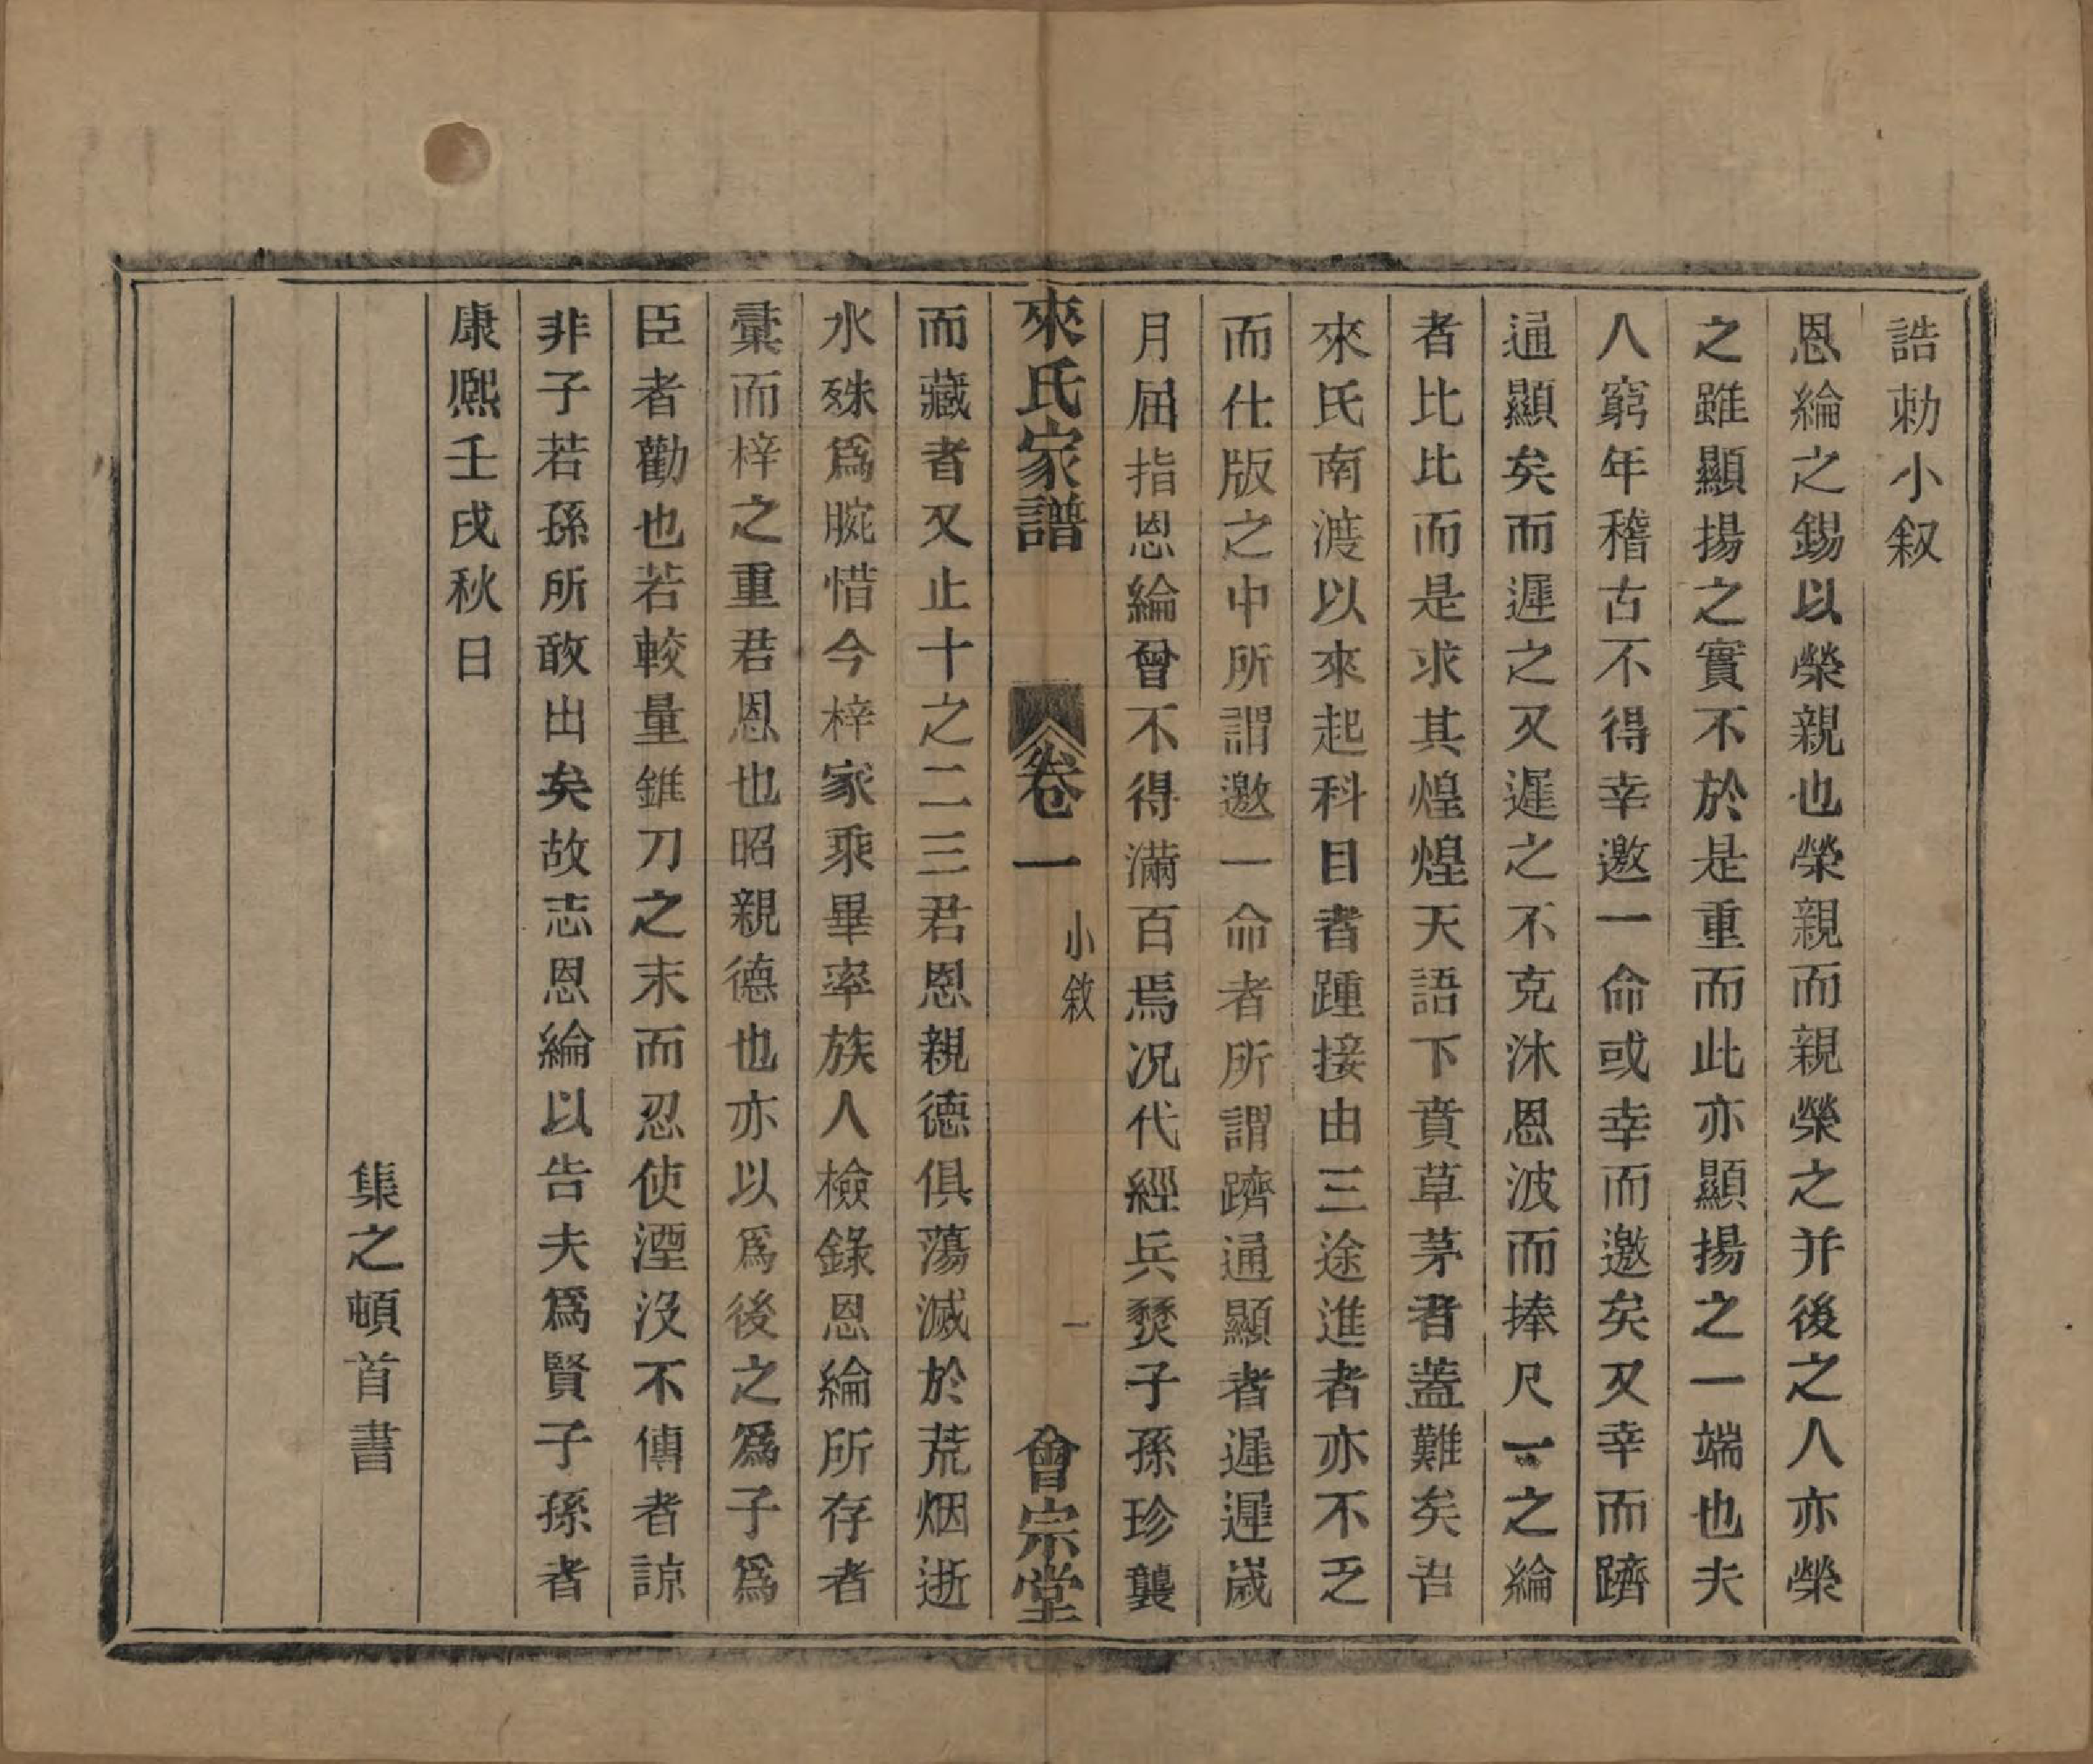 誥勅小叙
恩綸之錫以榮親也榮親而親榮之并後之人亦榮
之雖顯揚之實不於是重而此亦顯揚之一端也夫
人窮年稽古不得幸邀一命或幸而邀矣又幸而躋
通顯矣而遲之又遲之不克沐恩波而捧尺一之綸
者比比而是求其煌煌天語下賁草茅者蓋難矣吾
來氏南渡以來起科目者踵接由三途進者亦不乏
而仕版之中所謂邀一命者所謂躋通顯者遲遲歲
月屈指恩綸曾不得滿百焉况代經兵燹子孫珍襲
來氏家譜 卷一 小敘 一 會宗堂
而藏者又止十之二三君恩親德俱蕩滅於荒烟逝
水殊爲腕惜今梓家乘畢率族人檢錄恩綸所存者
彙而梓之重君恩也昭親德也亦以爲後之爲子爲
臣者勸也若較量錐刀之末而忍使湮沒不傳者諒
非子若孫所敢出矣故志恩綸以告夫爲賢子孫者
康熙壬戌秋日
集之頓首書